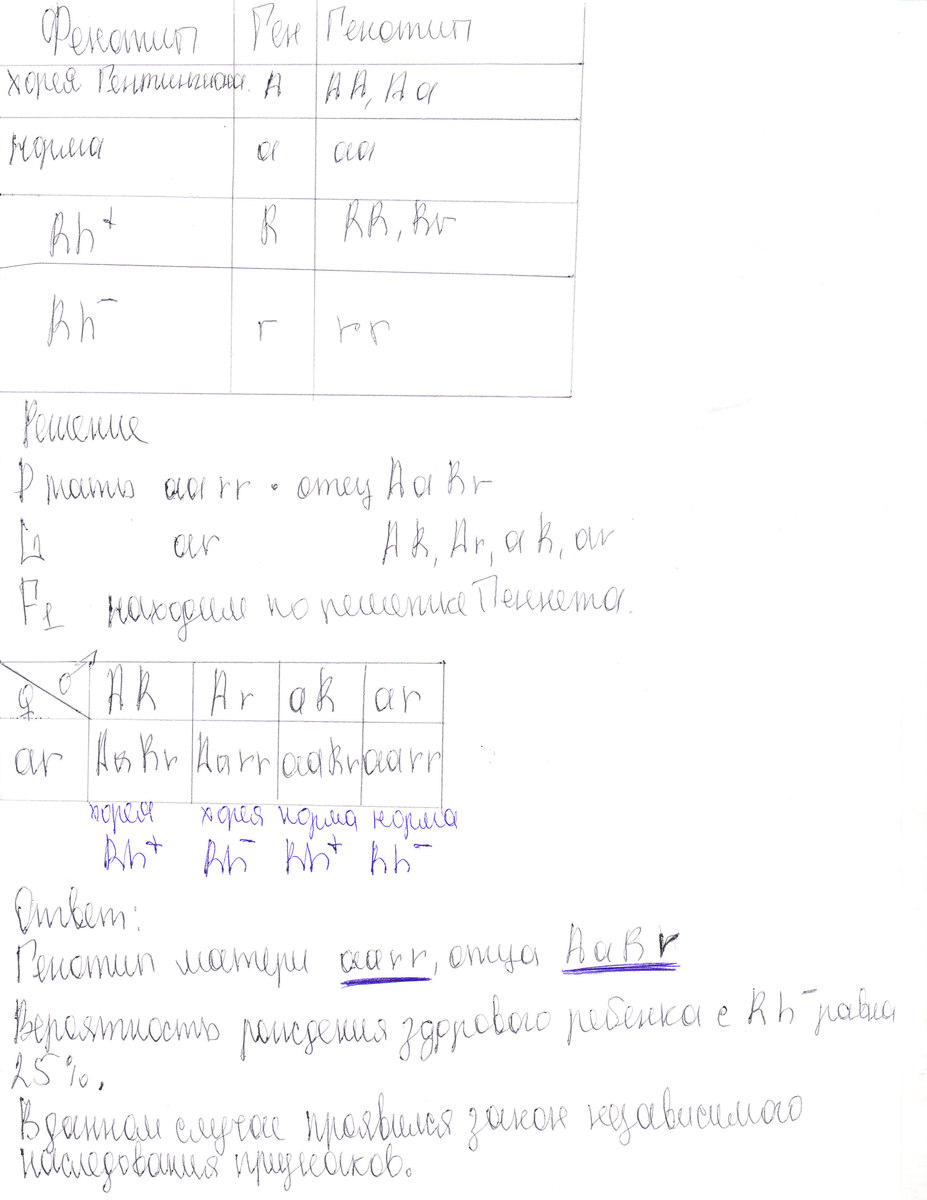 Фенотип Ген Генотип
хорея Гентингтона. А АА, Аа
норма а аа
Rh⁺ R RR, Rr
Rh⁻ r rr
Решение
Р мать ааrr · отец АаRr
G ar AR, Ar, aR, ar
F₁ находим по решетке Пеннета.
♀ ♂ AR Ar aR ar
ar AaRr Aarr aaRr aarr
хорея хорея норма норма
Rh⁺ Rh⁻ Rh⁺ Rh⁻
Ответ:
Генотип матери ааrr, отца АаRr
Вероятность рождения здорового ребенка с Rh⁻ равна
25%.
В данном случае проявился закон независимого
наследования признаков.